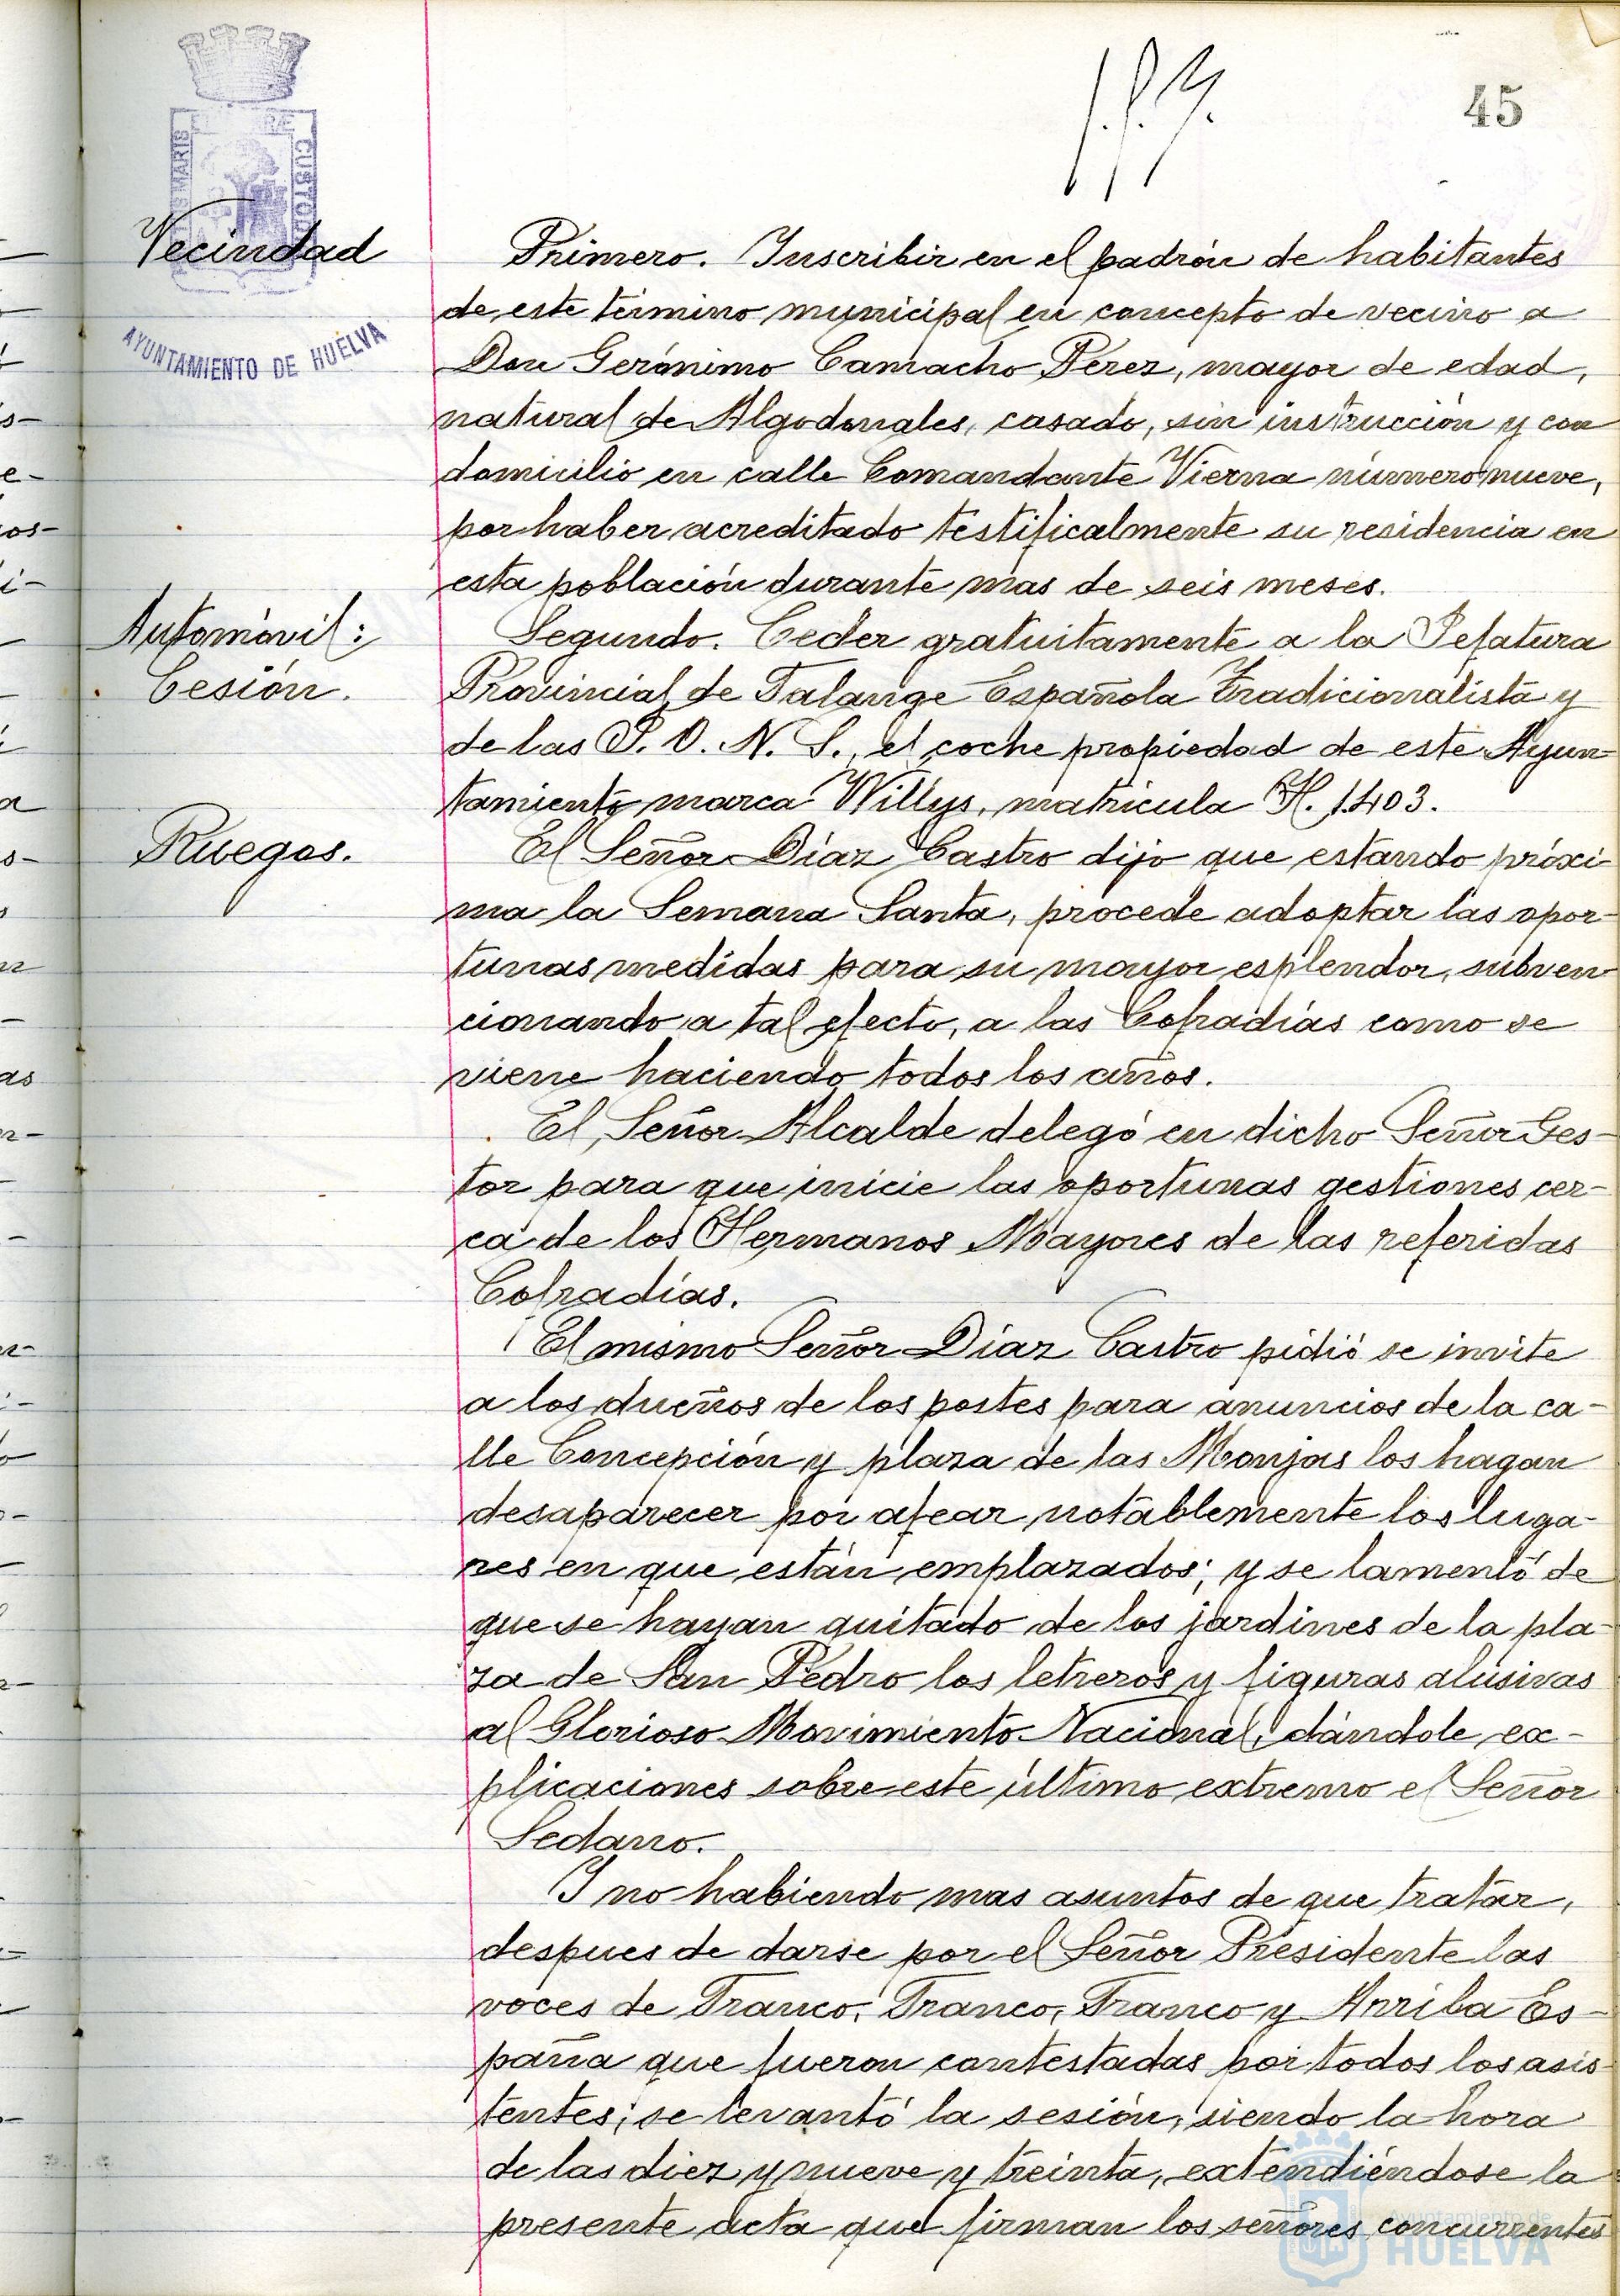 45
Vecindad
Primero. Inscribir en el padrón de habitantes
de este término municipal en concepto de vecino a
Don Gerónimo Camacho Pérez, mayor de edad,
natural de Algodonales, casado, sin instrucción y con
domicilio en calle Comandante Vierna número nueve,
por haber acreditado testificalmente su residencia en
esta población durante mas de seis meses.
Automóvil:
Cesión.
Segundo. Ceder gratuitamente a la Jefatura
Provincial de Falange Española Tradicionalista y
de las J. O. N. S., el coche propiedad de este Ayun-
tamiento marca Willys, matrícula H. 1.403.
Ruegos.
El Señor Díaz Castro dijo que estando próxi-
ma la Semana Santa, procede adoptar las opor-
tunas medidas para su mayor esplendor, subven-
cionando a tal efecto, a las Cofradías como se
viene haciendo todos los años.
El Señor Alcalde delegó en dicho Señor Ges-
tor para que inicie las oportunas gestiones cer-
ca de los Hermanos Mayores de las referidas
Cofradías.
El mismo Señor Díaz Castro pidió se invite
a los dueños de los postes para anuncios de la ca-
lle Concepción y plaza de las Monjas los hagan
desaparecer por afear notablemente los luga-
res en que están emplazados; y se lamentó de
que se hayan quitado de los jardines de la pla-
za de San Pedro los letreros y figuras alusivas
al Glorioso Movimiento Nacional, dándole ex-
plicaciones sobre este último extremo el Señor
Sedano.
Y no habiendo mas asuntos de que tratar,
despues de darse por el Señor Presidente las
voces de Franco, Franco, Franco y Arriba Es-
paña que fueron contestadas por todos los asis-
tentes; se levantó la sesión, siendo la hora
de las diez y nueve y treinta, extendiéndose la
presente acta que firman los señores concurrentes
AYUNTAMIENTO DE HUELVA
Ayuntamiento de
HUELVA